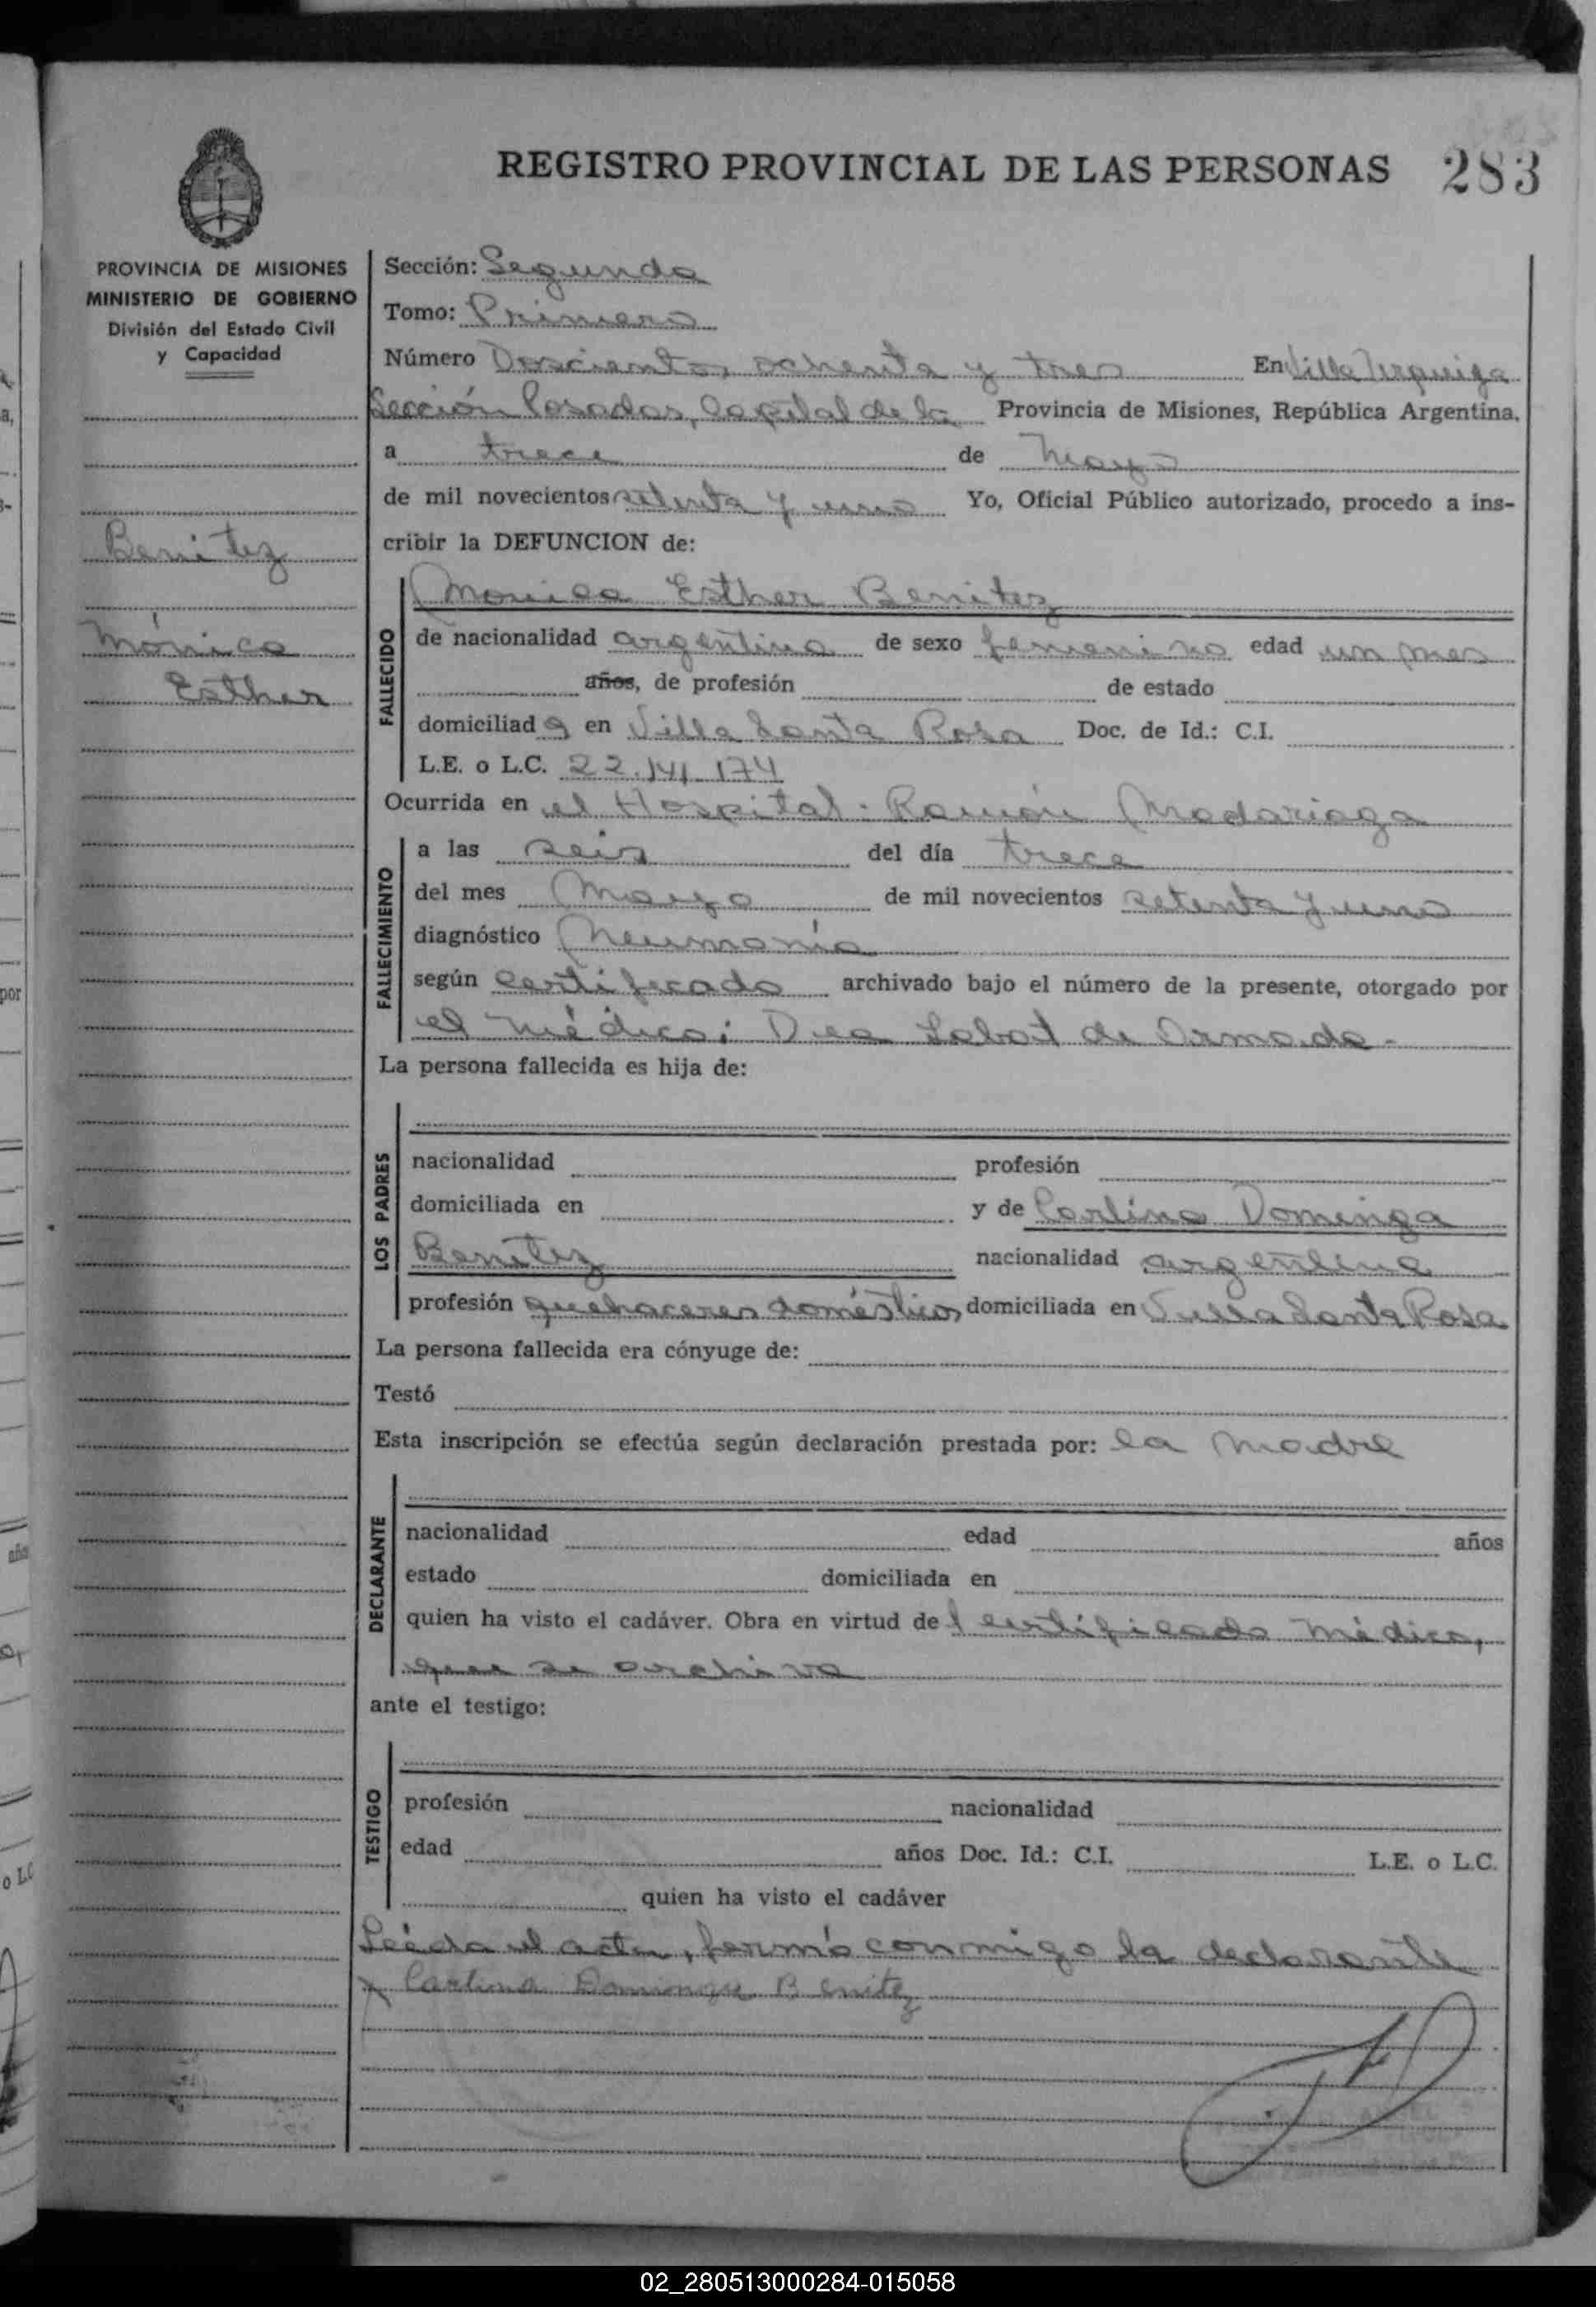 REGISTRO PROVINCIAL DE LAS PERSONAS 283
PROVINCIA DE MISIONES
MINISTERIO DE GOBIERNO
División del Estado Civil
y Capacidad
Benitez
Mónica
Esther
Sección: Segunda
Tomo: Primero
Número Doscientos ochenta y tres En Villa Urquiza
Sección Posadas, Capital de la Provincia de Misiones, República Argentina,
a trece de Mayo
de mil novecientos setenta y uno Yo, Oficial Público autorizado, procedo a ins-
cribir la DEFUNCION de:
FALLECIDO
Monica Esther Benitez
de nacionalidad argentina de sexo femenino edad un mes
años, de profesión de estado
domiciliada en Villa Santa Rosa Doc. de Id.: C.I.
L.E. o L.C. 22.141.174
Ocurrida en el Hospital Ramón Madariaga
FALLECIMIENTO
a las seis del día trece
del mes Mayo de mil novecientos setenta y uno
diagnóstico Neumonía
según certificado archivado bajo el número de la presente, otorgado por
el médico: Dra Sabot de Armada.
La persona fallecida es hija de:
LOS PADRES
nacionalidad profesión
domiciliada en y de Carlina Dominga
Benitez nacionalidad argentina
profesión quehaceres domésticos domiciliada en Villa Santa Rosa
La persona fallecida era cónyuge de:
Testó
Esta inscripción se efectúa según declaración prestada por: la Madre
DECLARANTE
nacionalidad edad años
estado domiciliada en
quien ha visto el cadáver. Obra en virtud del certificado médico,
que se archiva
ante el testigo:
TESTIGO
profesión nacionalidad
edad años Doc. Id.: C.I. L.E. o L.C.
quien ha visto el cadáver
Leída el acta, firmó conmigo la declarante
x Carlina Dominga Benitez
02_280513000284-015058